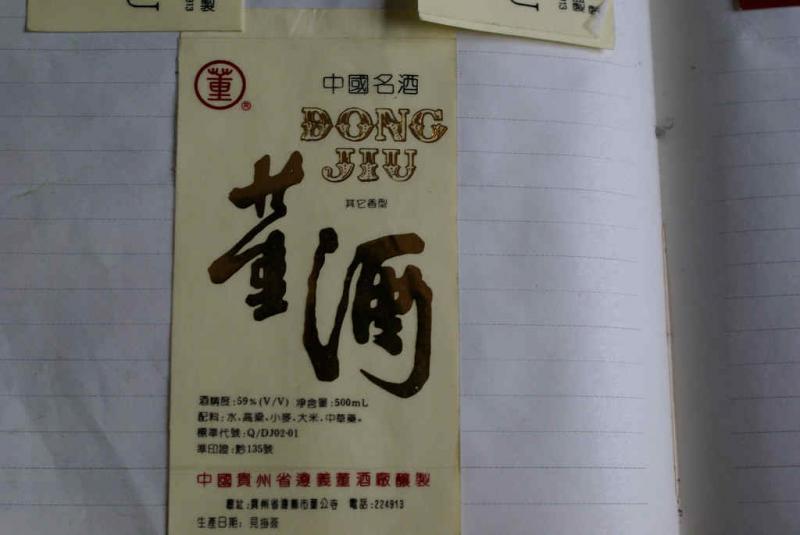 董
®
中國名酒
DONG
JIU
其它香型
董酒
酒精度:59%(V/V) 净含量:500mL
配料:水、高粱、小麥、大米、中草藥。
標準代號:Q/DJ02·01
準印證:黔135號
中國貴州省遵義董酒廠釀製
廠址:貴州省遵義市董公寺 電話:224913
生產日期: 見掛簽